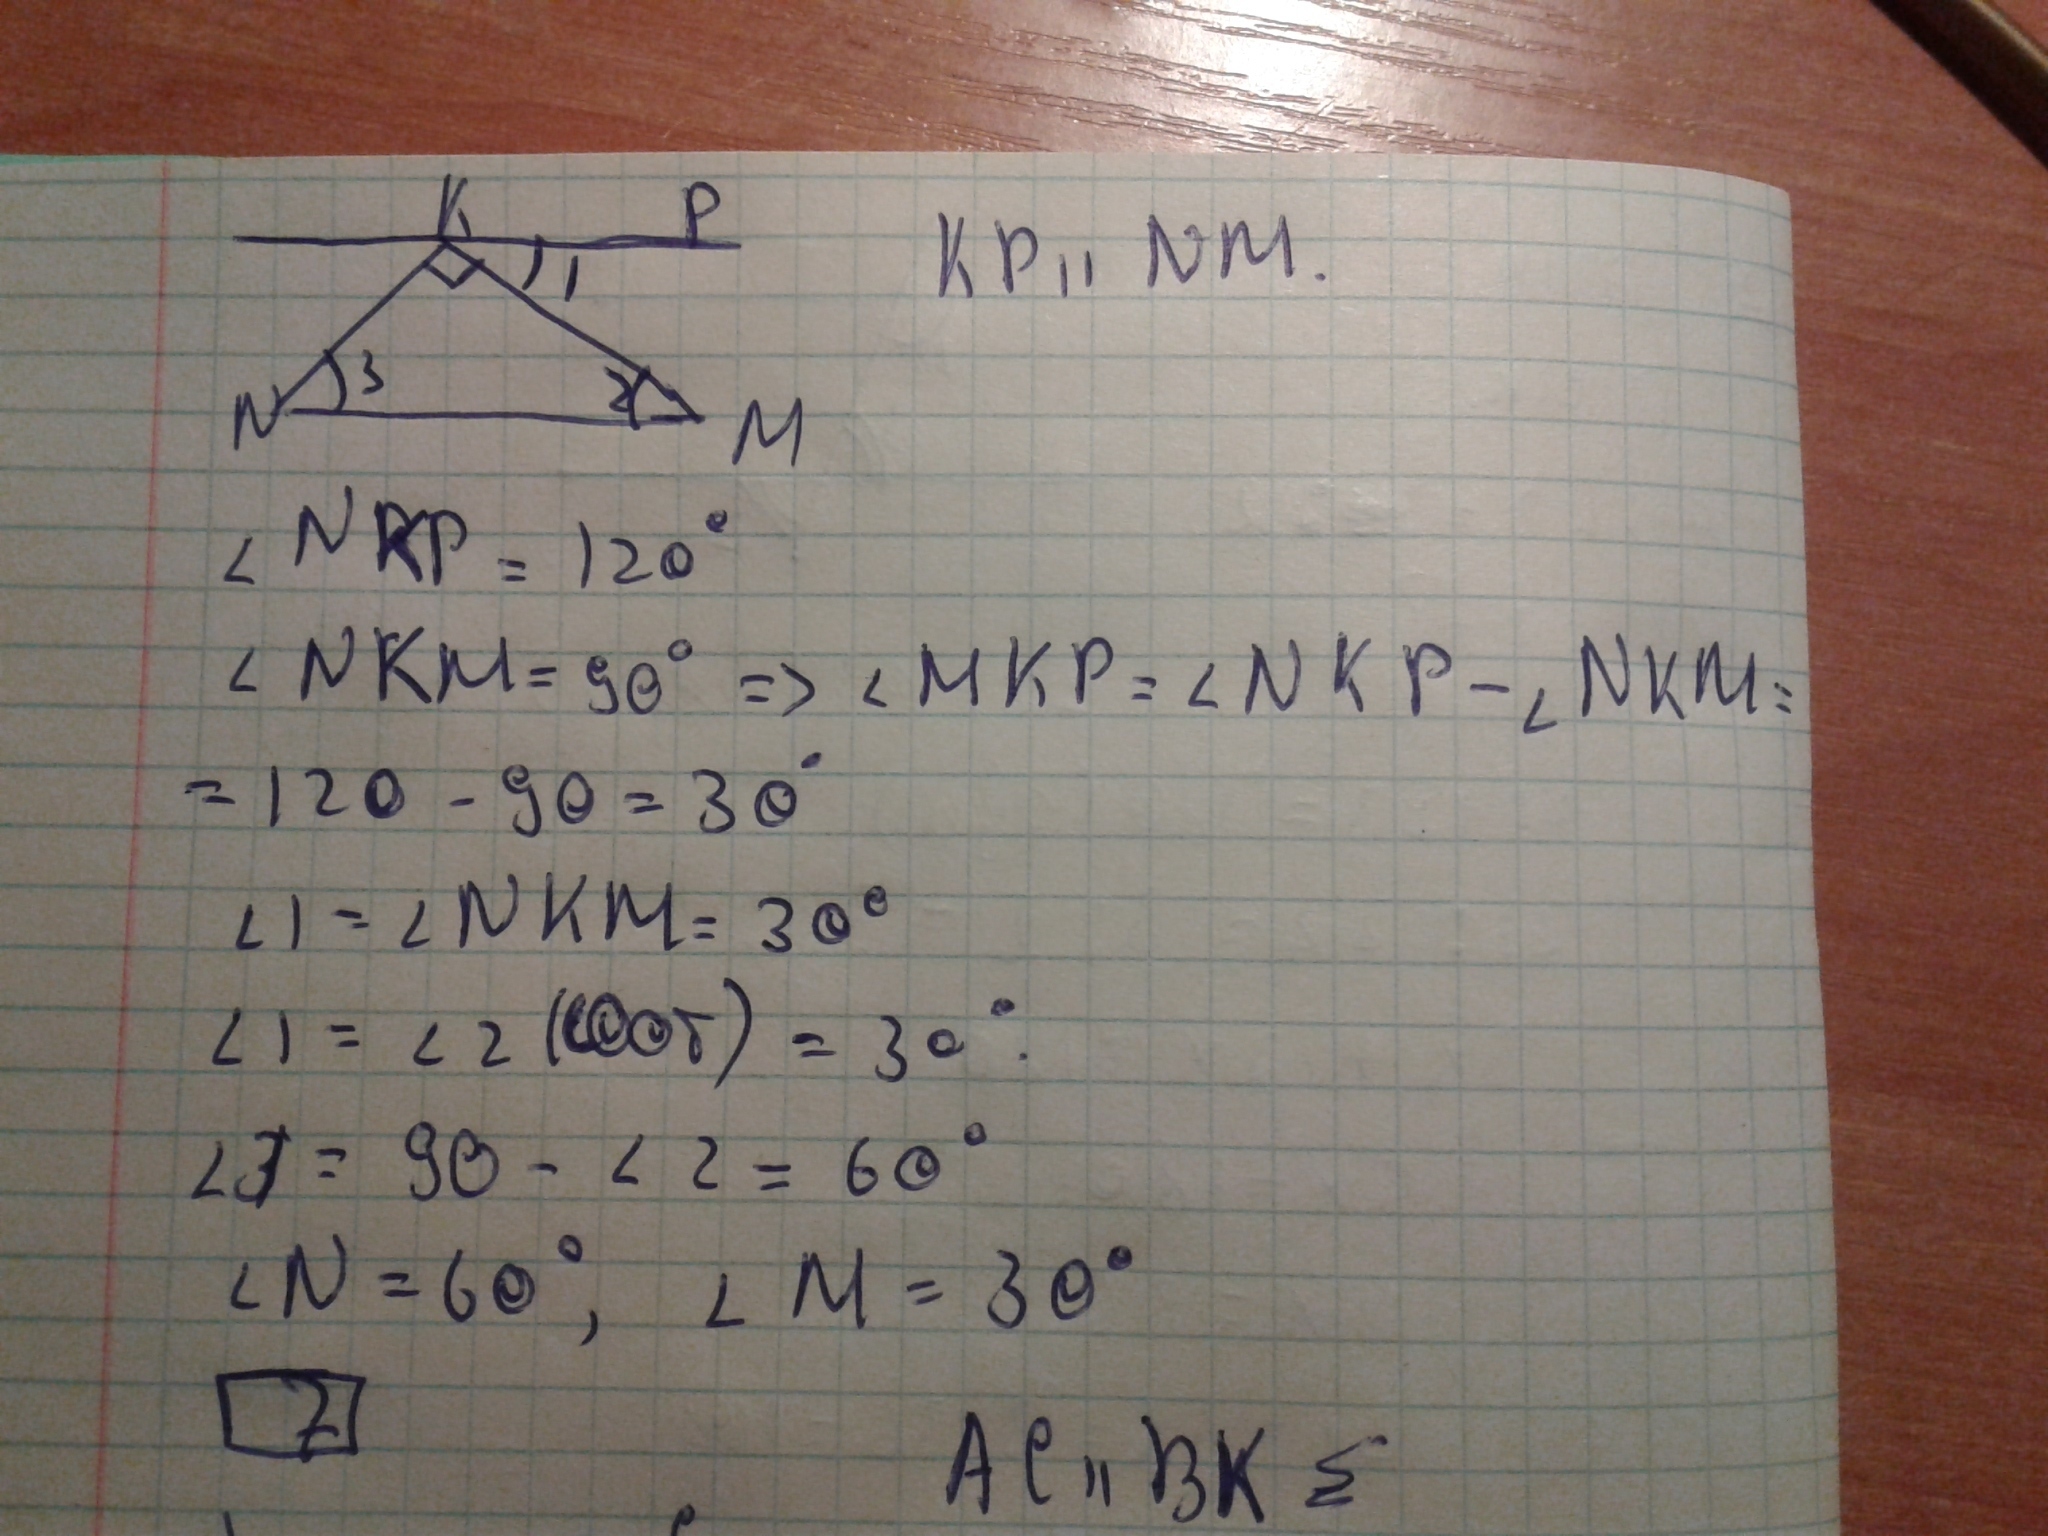 K P
KP || NM.
1
3 2
N M
∠ NKP = 120°
∠ NKM = 90° => ∠ MKP = ∠ NKP - ∠ NKM =
= 120 - 90 = 30°
∠1 = ∠ NKM = 30°
∠1 = ∠2 (соот) = 30°.
∠3 = 90 - ∠2 = 60°
∠N = 60°, ∠M = 30°
2
AC || BK